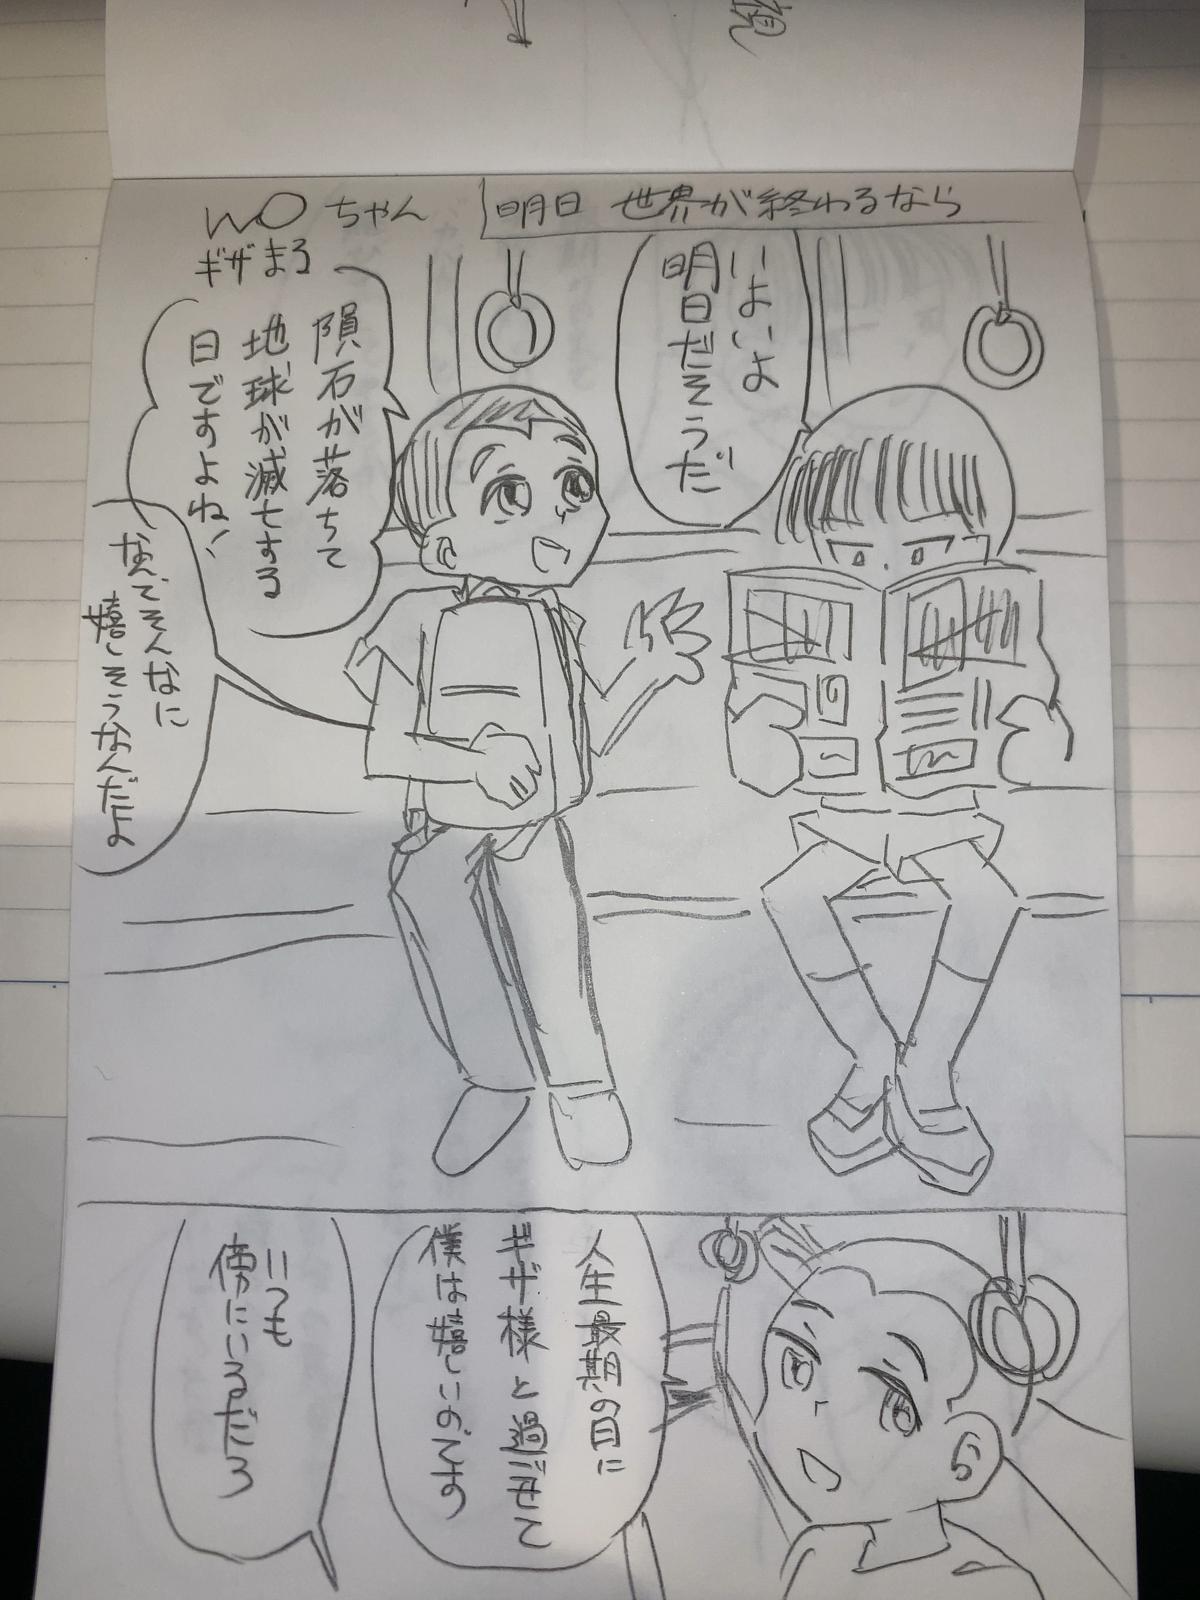 明日 世界が終わるなら
wo ちゃん
ギザまる
いよいよ
明日だそうだ
隕石が落ちて
地球が滅亡する
日ですよね!
なんでそんなに
嬉しそうなんだよ
人生最期の日に
ギザ様と過ごせて
僕は嬉しいのです
いつも
傍にいるだろ